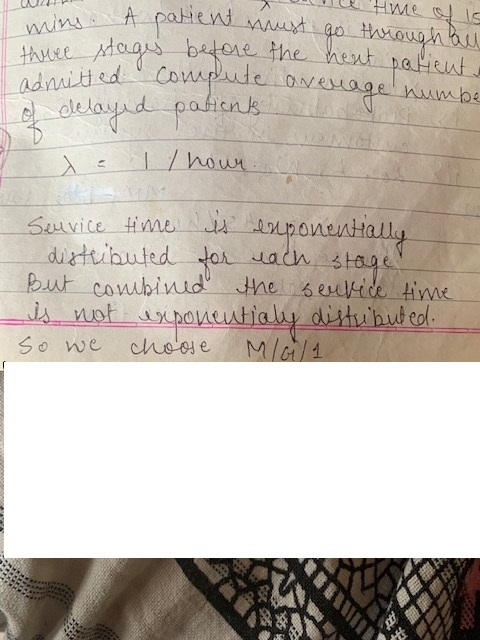 time of 15
mins. A patient must go through all
three stages before the next patient
admitted. Compute average numbe
of delayed patients
λ = 1 / hour.
Service time is exponentially
distributed for each stage
But combined the service time
is not exponentialy distributed.
So we choose M/G/1